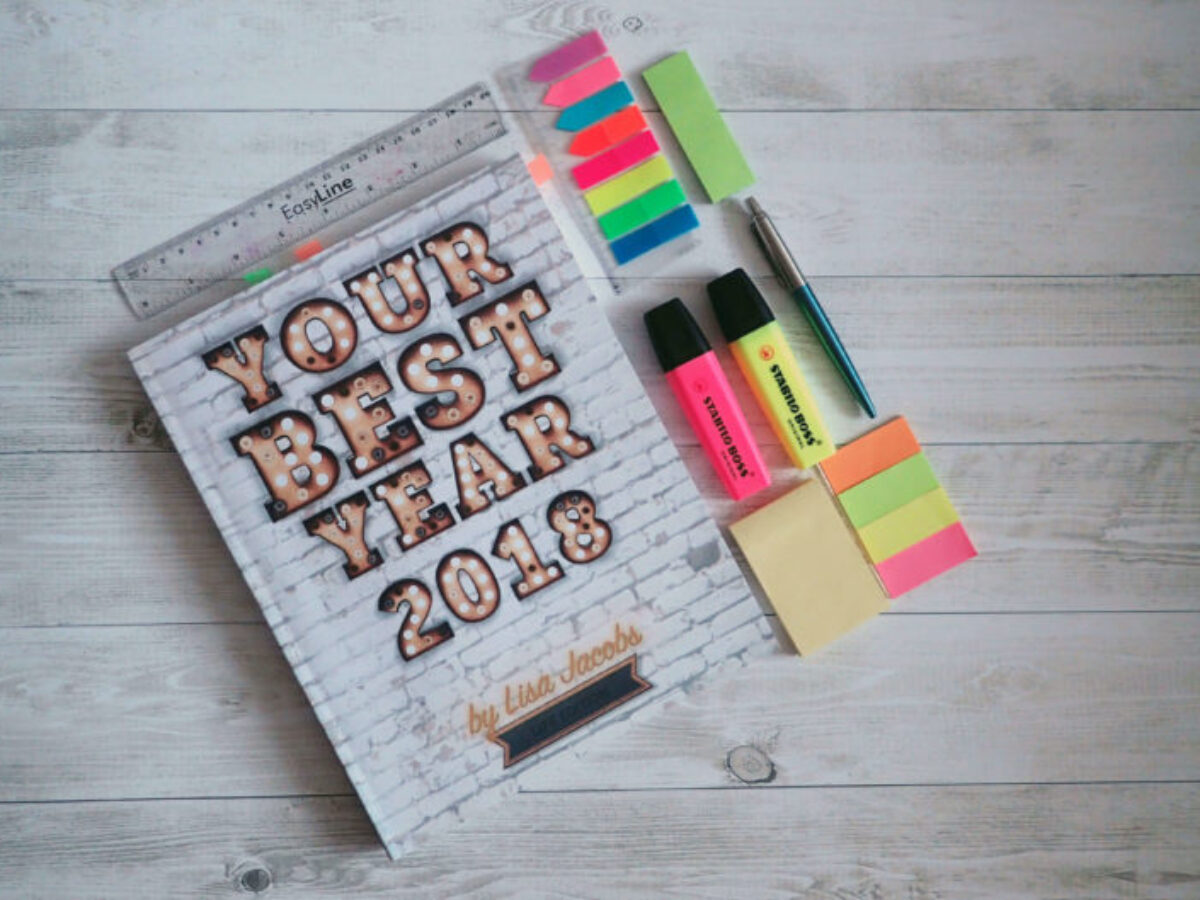 EasyLine
YOUR
BEST
YEAR
2018
by Lisa Jacobs
STABILO BOSS
STABILO BOSS